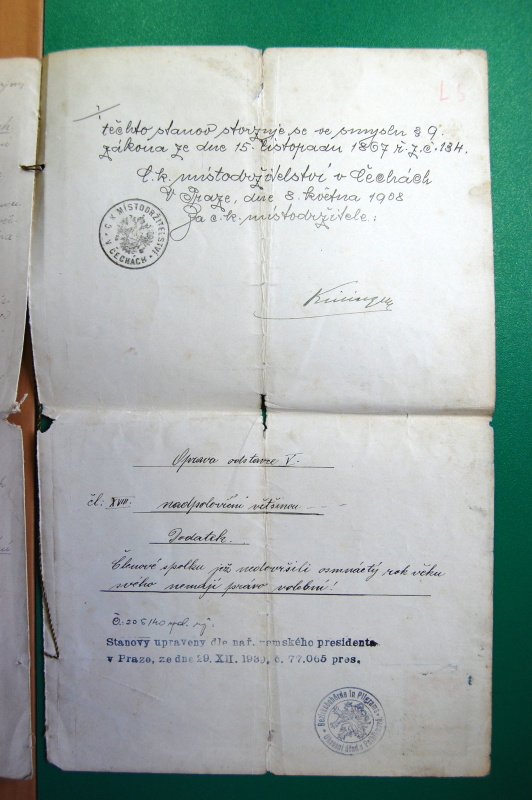 LS
těchto stanov stvrzuje se ve smyslu § 9.
zákona ze dne 15. listopadu 1867 ř. z. č. 134.
C. k. místodržitelství v Čechách
V Praze, dne 8. května 1908
Za c. k. místodržitele:
C. K. MÍSTODRŽITELSTVÍ V ČECHÁCH
Oprava odstavce V.
čl. XVIII. nadpoloviční většinou
Dodatek.
Členové spolku již nedovršili osmnáctý rok věku
svého nemají právo volební!
Stanovy upraveny dle nař. zemského presidenta
v Praze, ze dne 29. XII. 1939, č. 77.065 pres.